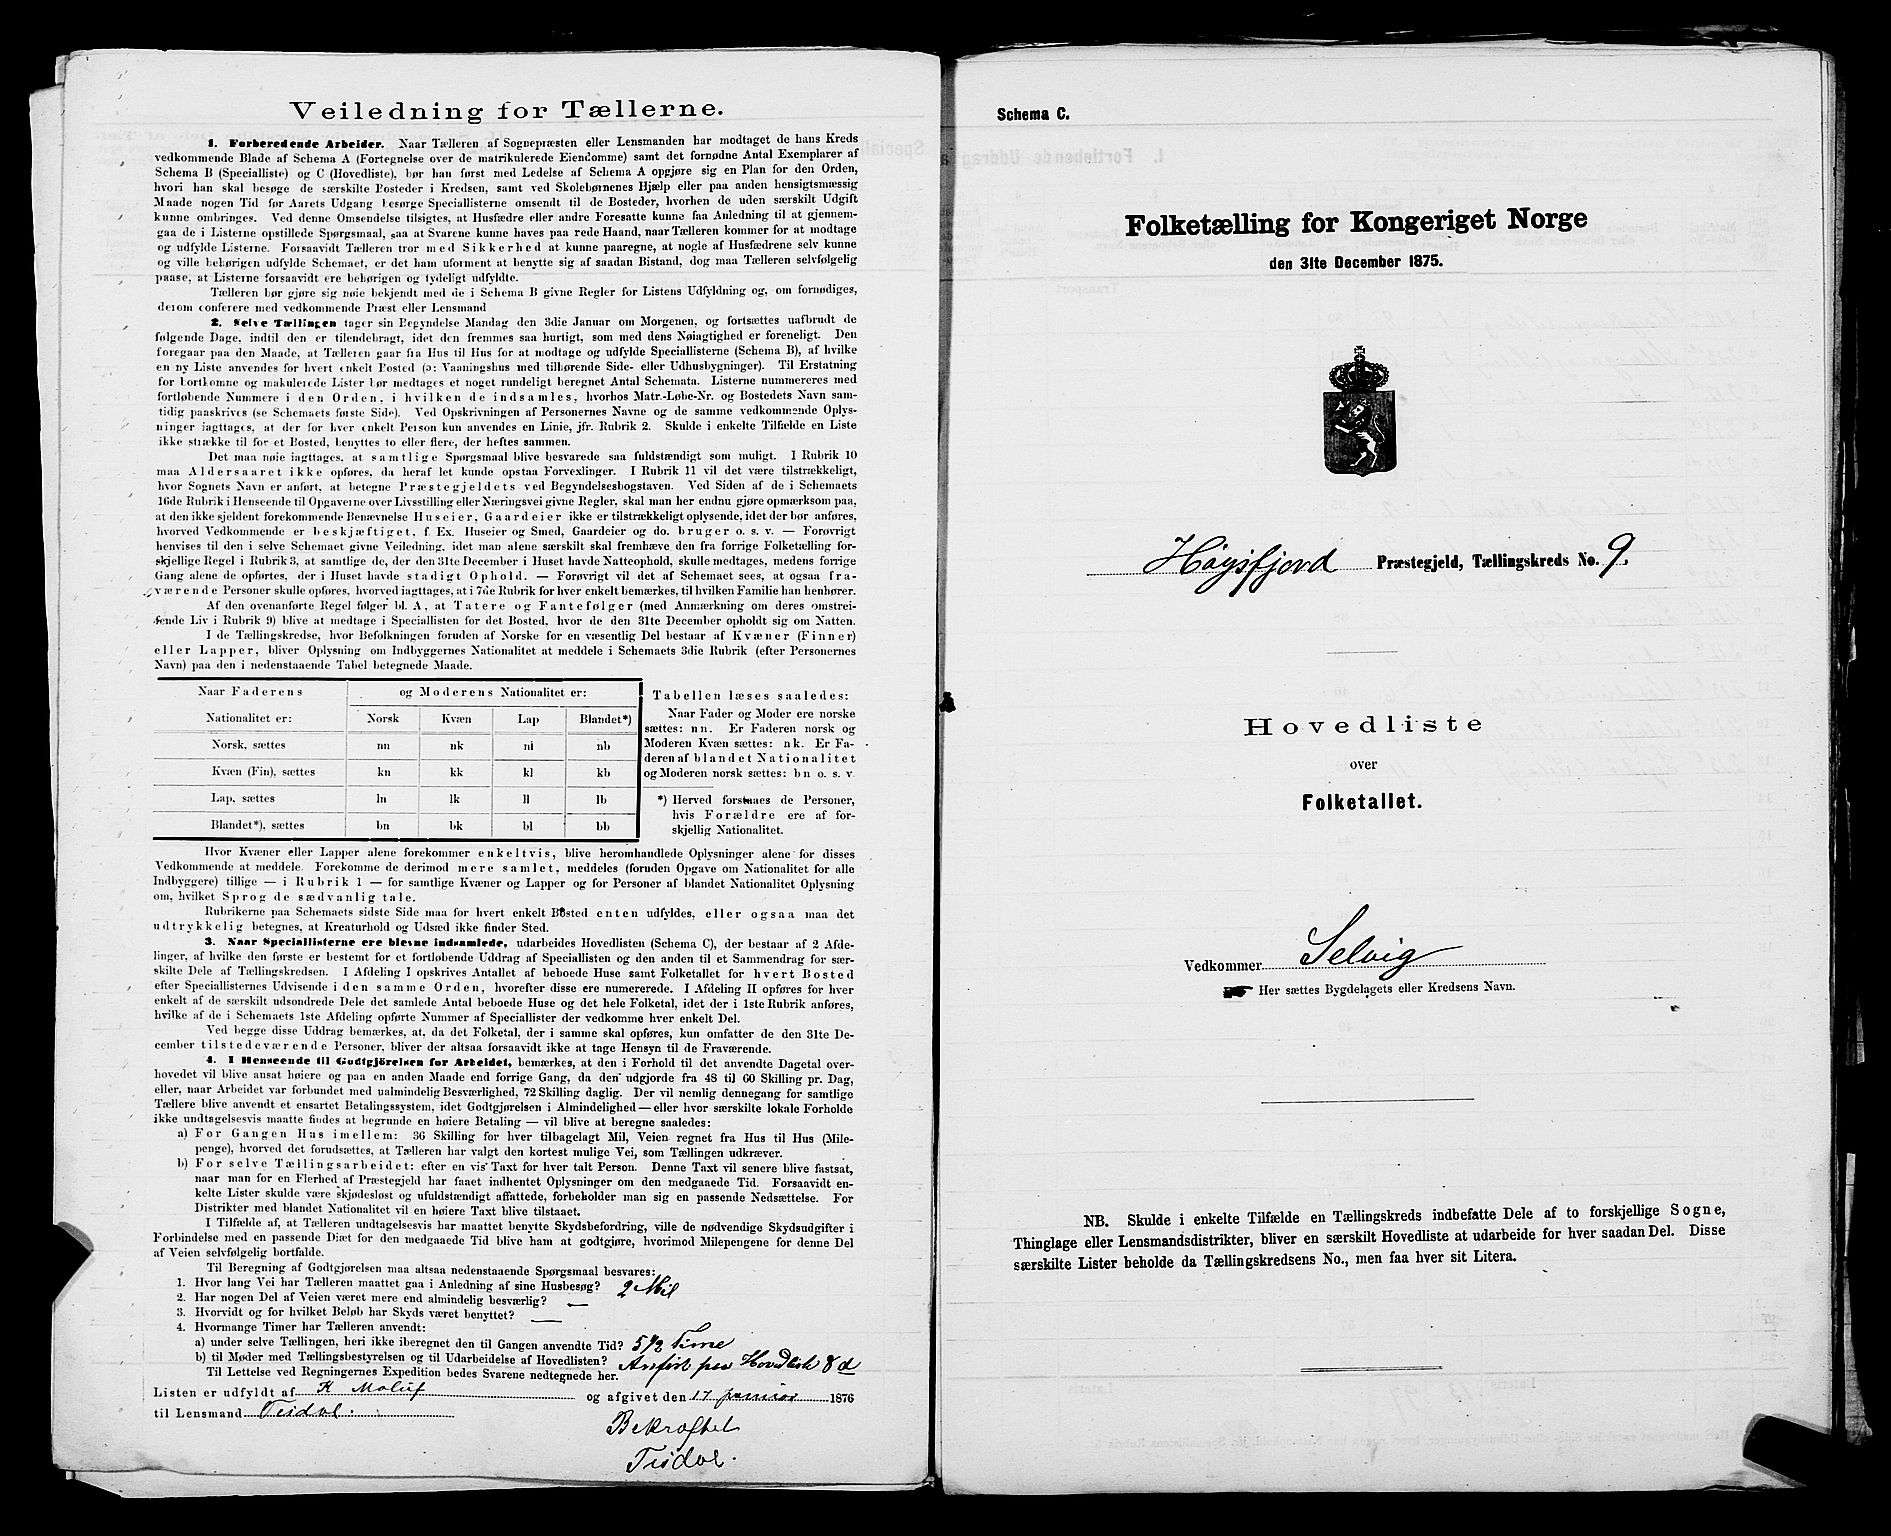 Veiledning for Tællerne.
1. Forberedende Arbeider. Naar Tælleren af Sognepræsten eller Lensmanden har modtaget de hans Kreds
vedkommende Blade af Schema A (Fortegnelse over de matrikulerede Eiendomme) samt det fornødne Antal Exemplarer af
Schema B (Specialliste) og C (Hovedliste), bør han først med Ledelse af Schema A opgjøre sig en Plan for den Orden,
hvori han skal besøge de særskilte Bosteder i Kredsen, samt ved Skolebørnenes Hjælp eller paa anden hensigtsmæssig
Maade nogen Tid før Aarets Udgang besørge Speciallisterne omsendt til de Bosteder, hvorhen de uden særskilt Udgift
kunne ombringes. Ved denne Omsendelse tilsigtes, at Husfædre eller andre Foresatte kunne faa Anledning til at gjennem-
gaa de i Listerne opstillede Spørgsmaal, saa at Svarene kunne haves paa rede Haand, naar Tælleren kommer for at modtage
og udfylde Listerne. Forsaavidt Tælleren tror med Sikkerhed at kunne paaregne, at nogle af Husfædrene selv kunne
og ville behørigen udfylde Schemaet, er det ham uforment at benytte sig af saadan Bistand, dog maa Tælleren selvfølgelig
paase, at Listerne forsaavidt ere behørigen og tydeligt udfyldte.
Tælleren bør gjøre sig nøie bekjendt med de i Schema B givne Regler for Listens Udfyldning og, om fornødiges,
derom conferere med vedkommende Præst eller Lensmand
2. Selve Tællingen tager sin Begyndelse Mandag den 3die Januar om Morgenen, og fortsættes uafbrudt de
følgende Dage, indtil den er tilendebragt, idet den fremmes saa hurtigt, som med dens Nøiagtighed er foreneligt. Den
foregaar paa den Maade, at Tælleren gaar fra Hus til Hus for at modtage og udfylde Speciallisterne (Schema B), af hvilke
en ny Liste anvendes for hvert enkelt Bosted (ɔ: Vaaningshus med tilhørende Side- eller Udhusbygninger). Til Erstatning
for bortkomne og makulerede Lister bør medtages et noget rundeligt beregnet Antal Schemata. Listerne nummereres med
fortløbende Nummere i den Orden, i hvilken de indsamles, hvorhos Matr.-Løbe-Nr. og Bostedets Navn sam-
tidig paaskrives (se Schemaets første Side). Ved Opskrivningen af Personernes Navne og de samme vedkommende Oplys-
ninger iagttages, at der for hver enkelt Person kun anvendes en Linie, jfr. Rubrik 2. Skulde i enkelte Tilfælde en Liste
ikke strække til for et Bosted, benyttes to eller flere, der heftes sammen.
Det maa nøie iagttages, at samtlige Spørgsmaal blive besvarede saa fuldstændigt som muligt. I Rubrik 10
maa Aldersaaret ikke opføres, da heraf let kunde opstaa Forvexlinger. I Rubrik 11 vil det være tilstrækkeligt,
hvor Sognets Navn er anført, at betegne Præstegjeldets ved Begyndelsesbogstaven. Ved Siden af de i Schemaets
16de Rubrik i Henseende til Opgaverne over Livsstilling eller Næringsvei givne Regler, skal man her endnu gjøre opmærksom paa,
at den ikke sjeldent forekommende Benævnelse Huseier, Gaardeier ikke er tilstrækkeligt oplysende, idet der bør anføres,
hvorved Vedkommende er beskjæftiget, f. Ex. Huseier og Smed, Gaardeier og do. bruger o. s. v. — Forøvrigt
henvises til den i selve Schemaet givne Veiledning, idet man alene særskilt skal fremhæve den fra forrige Folketælling for-
skjellige Regel i Rubrik 3, at samtlige de, der den 31te December i Huset havde Natteophold, skulle medtages, medens forrige
Gang alene de opførtes, der i Huset havde stadigt Ophold. — Forøvrigt vil det af Schemaet sees, at ogsaa fra-
værende Personer skulle opføres, hvorved iagttages, at i 7de Rubrik for hver enkelt bemærkes, til hvilken Familie han henhører.
Af den ovenanførte Regel følger bl. A, at Tatere og Fantefølger (med Anmærkning om deres omstrei-
fende Liv i Rubrik 9) blive at medtage i Speciallisten for det Bosted, hvor de den 31te December opholdt sig om Natten.
I de Tællingskredse, hvor Befolkningen foruden af Norske for en væsentlig Del bestaar af Kvæner (Finner)
eller Lapper, bliver Oplysning om Indbyggernes Nationalitet at meddele i Schemaets 3die Rubrik (efter Personernes
Navn) paa den i nedenstaaende Tabel betegnede Maade.
Naar Faderens og Moderens Nationalitet er:
Nationalitet er: Norsk Kvæn Lap Blandet*)
Norsk, sættes nn nk nl nb
Kvæn (Fin), sættes kn kk kl kb
Lap, sættes ln lk ll lb
Blandet*), sættes bn bk bl bb
Tabellen læses saaledes:
Naar Fader og Moder ere norske
sættes: nn. Er Faderen norsk og
Moderen Kvæn sættes: nk. Er Fa-
deren af blandet Nationalitet
og Moderen norsk sættes: bn o. s. v.
*) Herved forstaaes de Personer,
hvis Forældre ere af for-
skjellig Nationalitet.
Hvor Kvæner eller Lapper alene forekommer enkeltvis, blive heromhandlede Oplysninger alene for disses
Vedkommende at meddele. Forekomme de derimod mere samlet, meddeles (foruden Opgave om Nationalitet for alle
Indbyggere) tillige — i Rubrik 1 — for samtlige Kvæner og Lapper og for Personer af blandet Nationalitet Oplysning
om, hvilket Sprog de sædvanlig tale.
Rubrikerne paa Schemaets sidste Side maa for hvert enkelt Bosted enten udfyldes, eller ogsaa maa det
udtrykkelig betegnes, at Kreaturhold og Udsæd ikke finder Sted.
3. Naar Speciallisterne ere blevne indsamlede, udarbeides Hovedlisten (Schema C), der bestaar af 2 Afde-
linger, af hvilke den første er bestemt for et fortløbende Uddrag af Speciallisten og den anden til et Sammendrag for sær-
skilte Dele af Tællingskredsen. I Afdeling I opskrives Antallet af beboede Huse samt Folketallet for hvert Bosted
efter Speciallisternes Udvisende i den samme Orden, hvorefter disse ere numererede. I Afdeling II opføres for hver
enkelt af de særskilt udsondrede Dele det samlede Antal beboede Huse og det hele Folketal, idet der i 1ste Rubrik anføres,
hvilke af de i Schemaets 1ste Afdeling opførte Nummer af Speciallister der vedkomme hver enkelt Del.
Ved begge disse Uddrag bemærkes, at, da det Folketal, der i samme skal opføres, kun omfatter de den 31te De-
cember tilstedeværende Personer, bliver der altsaa forsaavidt ikke at tage Hensyn til de Fraværende.
4. I Henseende til Godtgjörelsen for Arbeidet, bemærkes, at den i Forhold til det anvendte Dagetal over-
hovedet vil blive ansat høiere og paa en anden Maade end forrige Gang, da den udgjorde fra 48 til 60 Skilling pr. Dag,
eller, naar Arbeidet var forbundet med ualmindelig Besværlighed, 72 Skilling daglig. Der vil nemlig dennegang for samtlige
Tællere blive anvendt et ensartet Betalingssystem, idet Godtgjørelsen i Almindelighed — eller hvor særskilte lokale Forholde
ikke undtagelsesvis maatte findes at begrunde en høiere Betaling — vil blive at beregne saaledes:
a) For Gangen Hus imellem: 36 Skilling for hver tilbagelagt Mil, Veien regnet fra Hus til Hus (Mile-
penge), hvorved det forudsættes, at Tælleren har valgt den kortest mulige Vei, som Tællingen udkræver.
b) For selve Tællingsarbeidet: efter en vis Taxt for hver talt Person. Denne Taxt vil senere blive fastsat,
naar man for en Flerhed af Præstegjeld har faaet indhentet Oplysninger om den medgaaede Tid. Forsaavidt en-
kelte Lister skulde være skjødesløst og ufuldstændigt affattede, forbeholder man sig en passende Nedsættelse. For
Distrikter med blandet Nationalitet vil en høiere Taxt blive tilstaaet.
I Tilfælde af, at Tælleren undtagelsesvis har maattet benytte Skydsbefordring, ville de nødvendige Skydsudgifter i
Forbindelse med en passende Diæt for den medgaaede Tid blive ham at godtgjøre, hvorimod Milepengene for denne Del
af Veien selvfølgelig bortfalde.
Til Beregning af Godtgjørelsen maa altsaa nedenstaaende Spørgsmaal besvares:
1. Hvor lang Vei har Tælleren maattet gaa i Anledning af sine Husbesøg? 2 Mil
2. Har nogen Del af Veien været mere end almindelig besværlig? —
3. Hvorvidt og for hvilket Beløb har Skyds været benyttet? —
4. Hvormange Timer har Tælleren anvendt:
a) under selve Tællingen, heri ikke iberegnet den til Gangen anvendte Tid? 5 1/2 Time
b) til Møder med Tællingsbestyrelsen og til Udarbeidelse af Hovedlisten? Anført paa Hovedliste 8 d
Til Lettelse ved Regningernes Expedition bedes Svarene nedtegnede her.
Listen er udfyldt af K Maluf og afgivet den 17 januar 1876
til Lensmand Tisdal.
Bekræftet
Tisdal.
Schema C.
Folketælling for Kongeriget Norge
den 31te December 1875.
Høgsfjord Præstegjeld, Tællingskreds No. 9.
Hovedliste
over
Folketallet.
Vedkommer Selvig
Her sættes Bygdelagets eller Kredsens Navn.
NB. Skulde i enkelte Tilfælde en Tællingskreds indbefatte Dele af to forskjellige Sogne,
Thinglage eller Lensmandsdistrikter, bliver en særskilt Hovedliste at udarbeide for hver saadan Del. Disse
særskilte Lister beholde da Tællingskredsens No., men faa hver sit Litera.